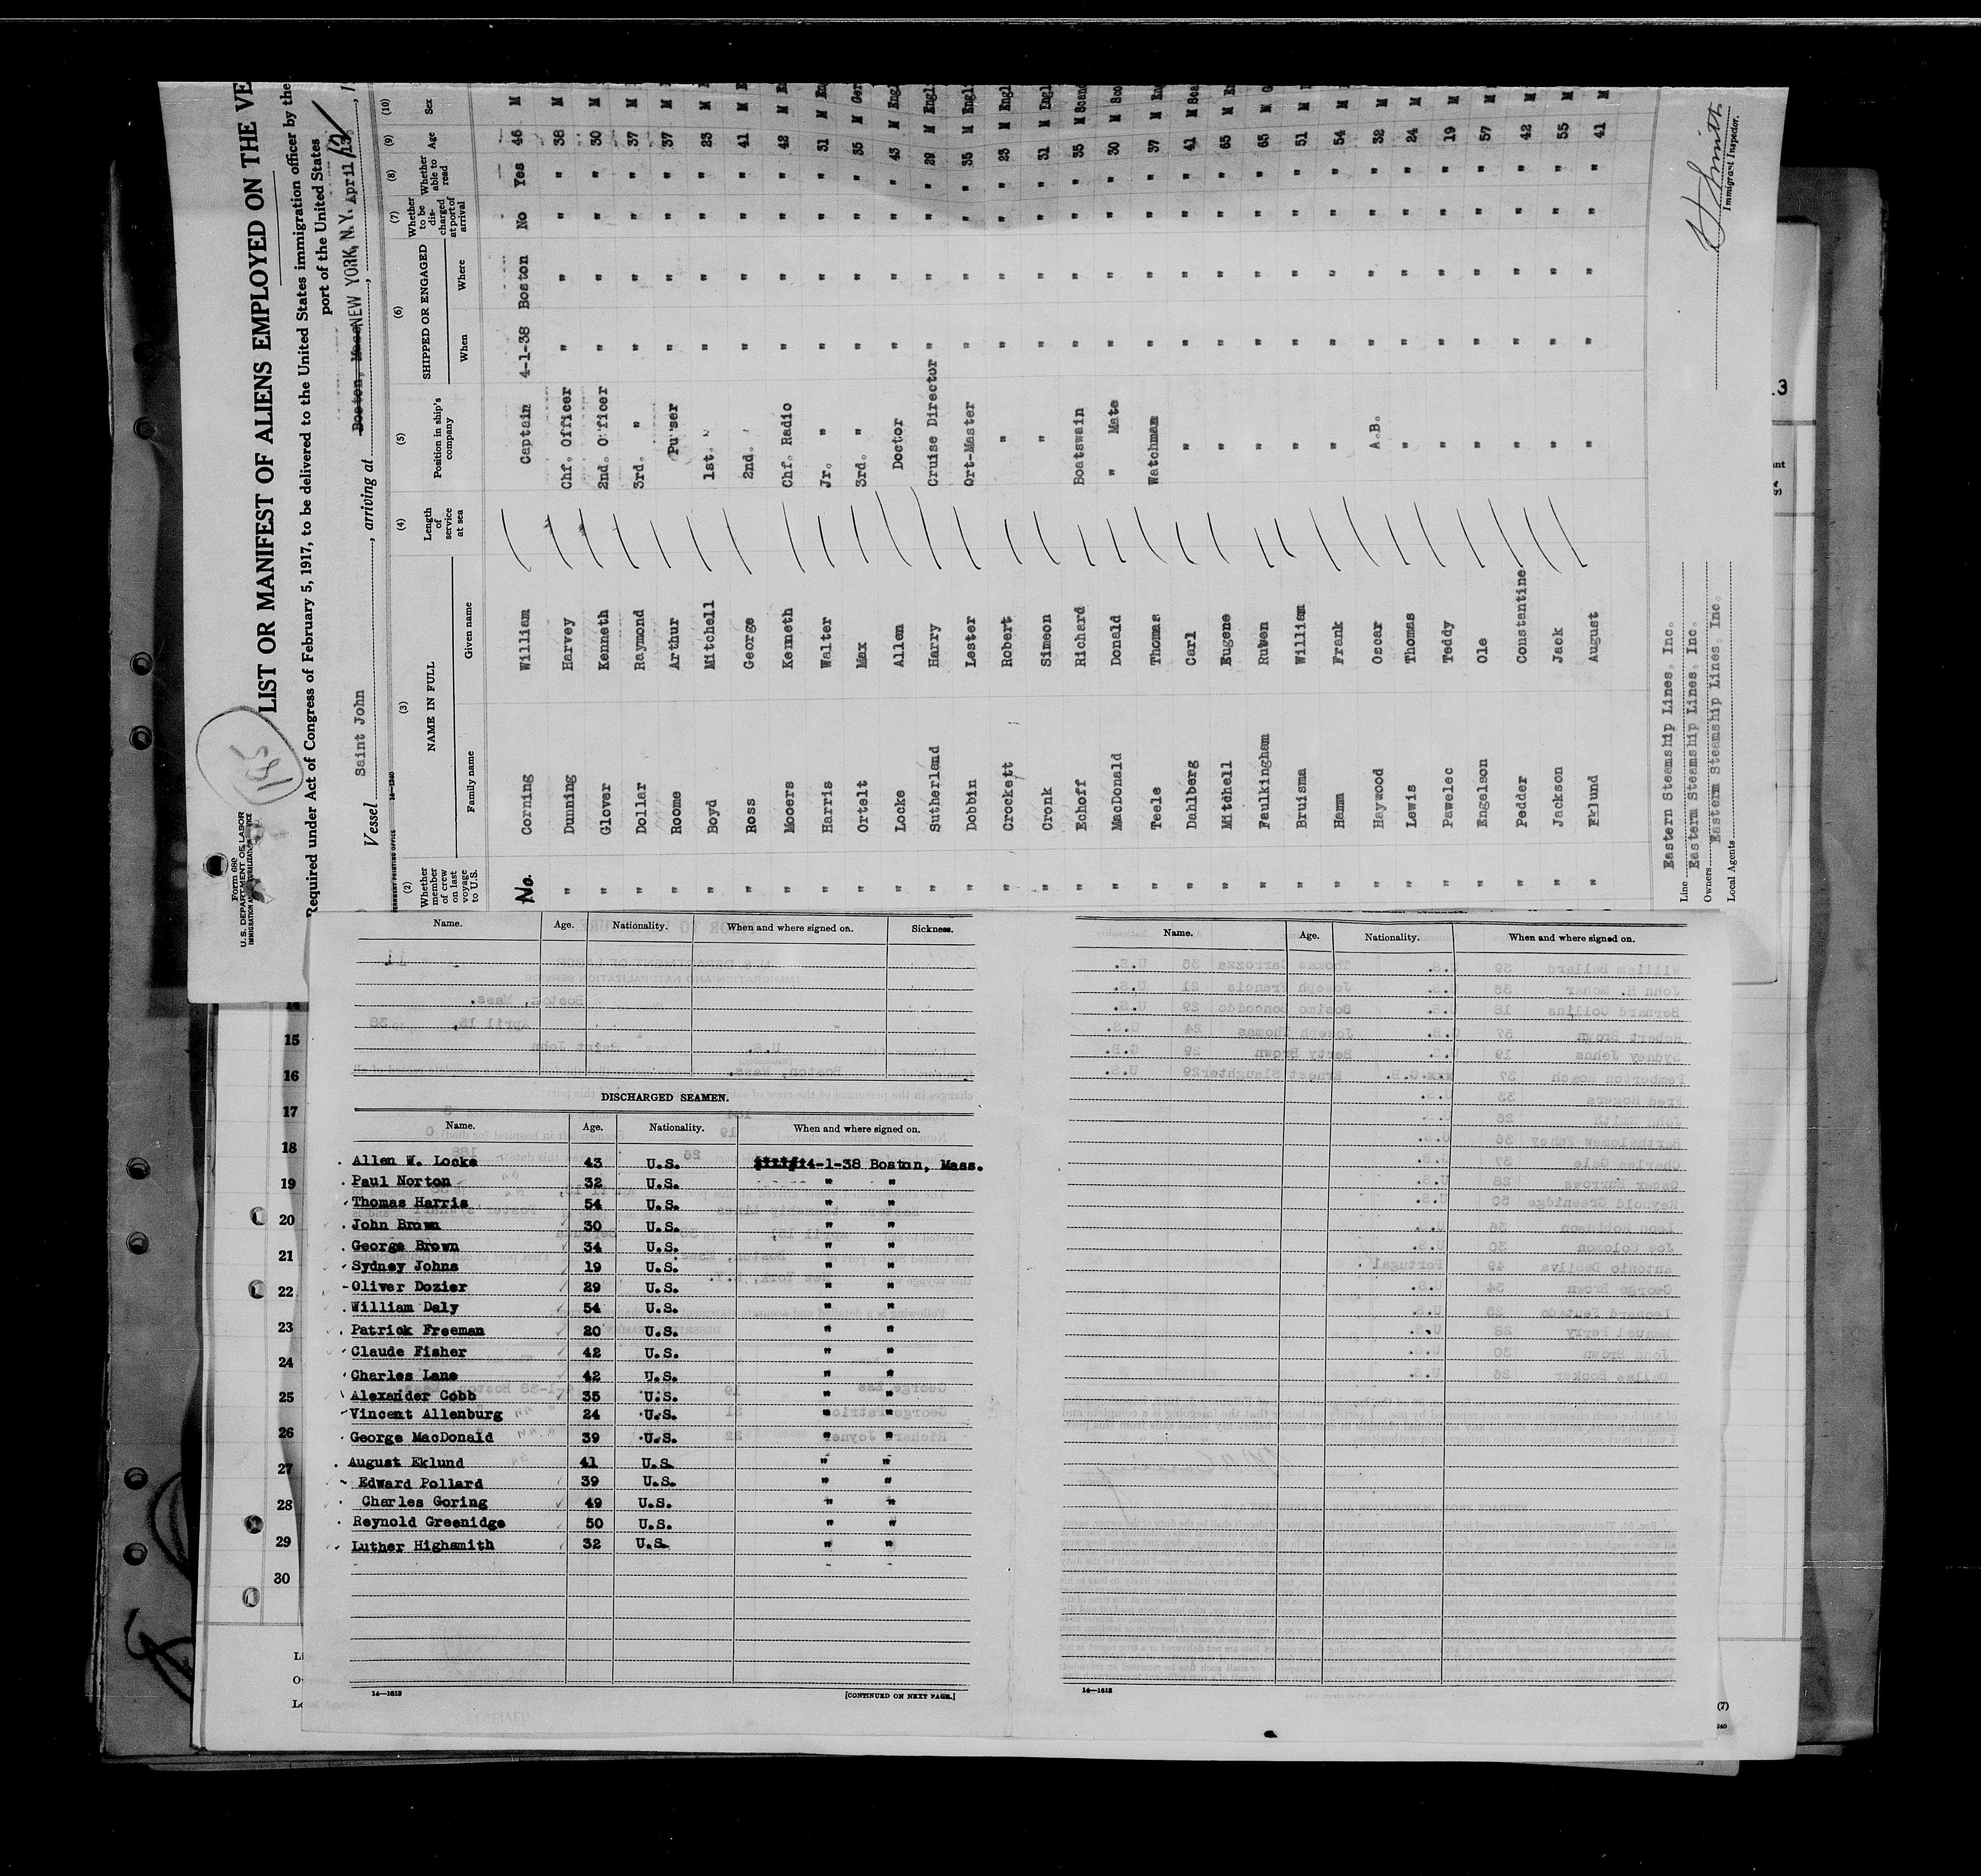 Form 680
U. S. DEPARTMENT OF LABOR
IMMIGRATION AND NATURALIZATION SERVICE
195
LIST OR MANIFEST OF ALIENS EMPLOYED ON THE VE
Required under Act of Congress of February 5, 1917, to be delivered to the United States immigration officer by the
port of the United States
Vessel Saint John, arriving at Boston, Mass NEW YORK, N.Y. April
14-1240
(2) (3) (4) (5) (6) (7) (8) (9) (10)
Whether member of crew on last voyage to U.S. NAME IN FULL Family name Given name Length of service at sea Position in ship's company SHIPPED OR ENGAGED When Where Whether to be discharged at port of arrival Whether able to read Age Sex
No. Corning William Captain 4-1-38 Boston No Yes 46 M
" Dunning Harvey Chf. Officer " " " " 38 M
" Glover Kenneth 2nd. Officer " " " " 30 M
" Dollar Raymond 3rd. " " " " " 37 M
" Roome Arthur Purser " " " " 37 M
" Boyd Mitchell 1st. " " " " " 23 M
" Ross George 2nd. " " " " 41 M
" Mooers Kenneth Chf. Radio " " " " 42 M
" Harris Walter Jr. " " " " " 31 M
" Ortelt Max 3rd. " " " " " 35 M Ger
" Locke Allen Doctor " " " " 43 M Engl
" Sutherland Harry Cruise Director " " " " 29 M Engl
" Dobbin Lester Qrt-Master " " " " 35 M Engl
" Crockett Robert " " " " " 23 M Engl
" Cronk Simeon " " " " " 31 M Engl
" Echoff Richard Boatswain " " " " 35 M Scan
" MacDonald Donald " Mate " " " " 30 M Sco
" Teele Thomas Watchman " " " " 37 M En
" Dahlberg Carl " " " " " 41 M Sca
" Mitchell Eugene " " " " " 65 M
" Faulkingham Ruben " " " " " 65 M
" Bruisma William " " " " " 51 M
" Hamm Frank " " " " " 54 M
" Haywood Oscar A.B. " " " " 32 M
" Lewis Thomas " " " " " 24 M
" Pawelec Teddy " " " " " 19 M
" Engelson Ole " " " " " 57 M
" Pedder Constantine " " " " " 42 M
" Jackson Jack " " " " " 55 M
" Eklund August " " " " " 41 M
Line Eastern Steamship Lines, Inc.
Owners Eastern Steamship Lines, Inc.
Local Agents Eastern Steamship Lines, Inc.
Immigrant Inspector.
Name. Age. Nationality. When and where signed on. Sickness.
DISCHARGED SEAMEN.
Name. Age. Nationality. When and where signed on.
Allen W. Locke 43 U.S. 4-1-38 Boston, Mass.
Paul Norton 32 U.S. " "
Thomas Harris 54 U.S. " "
John Brown 30 U.S. " "
George Brown 34 U.S. " "
Sydney Johns 19 U.S. " "
Oliver Dozier 29 U.S. " "
William Daly 54 U.S. " "
Patrick Freeman 20 U.S. " "
Claude Fisher 42 U.S. " "
Charles Lane 42 U.S. " "
Alexander Cobb 35 U.S. " "
Vincent Allenburg 24 U.S. " "
George MacDonald 39 U.S. " "
August Eklund 41 U.S. " "
Edward Pollard 39 U.S. " "
Charles Goring 49 U.S. " "
Reynold Greenidge 50 U.S. " "
Luther Highsmith 32 U.S. " "
14—1613
[CONTINUED ON NEXT PAGE.]
Name. Age. Nationality. When and where signed on.
14—1613
15
16
17
18
19
20
21
22
23
24
25
26
27
28
29
30
(7)